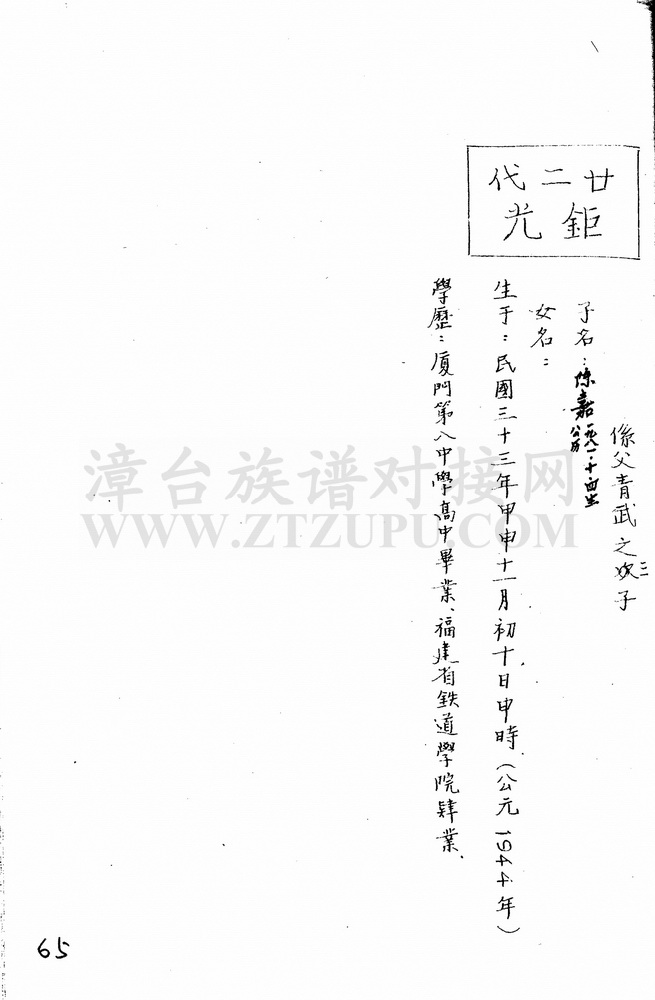 廿二代
鉅光
係父青武之次子
三
子名：陳嘉
公历
一九八一·十·四生
女名：
生于：民國三十三年甲申十一月初十日申時（公元1944年）
學歷：厦門第八中學高中畢業、福建省鉄道學院肄業、
漳台族谱对接网
WWW.ZTZUPU.COM
65